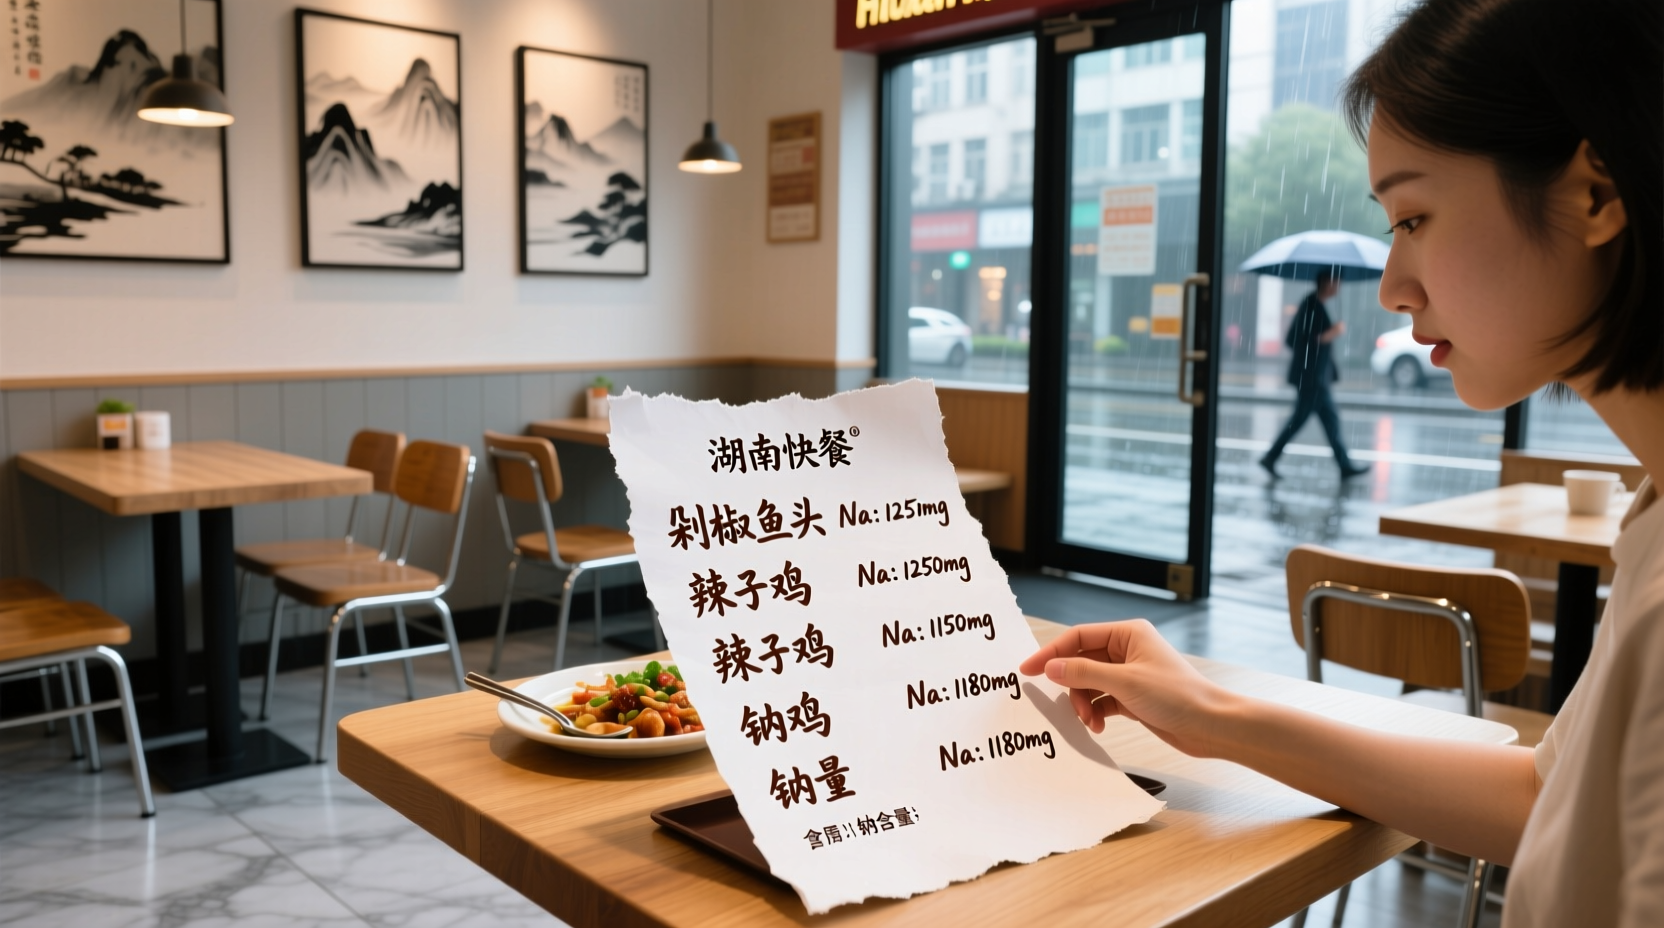 湖南快餐®
剁椒鱼头 Na: 1251mg
辣子鸡 Na: 1250mg
辣子鸡 Na: 1150mg
钠鸡 Na: 1180mg
钠量 Na: 1180mg
钠含量